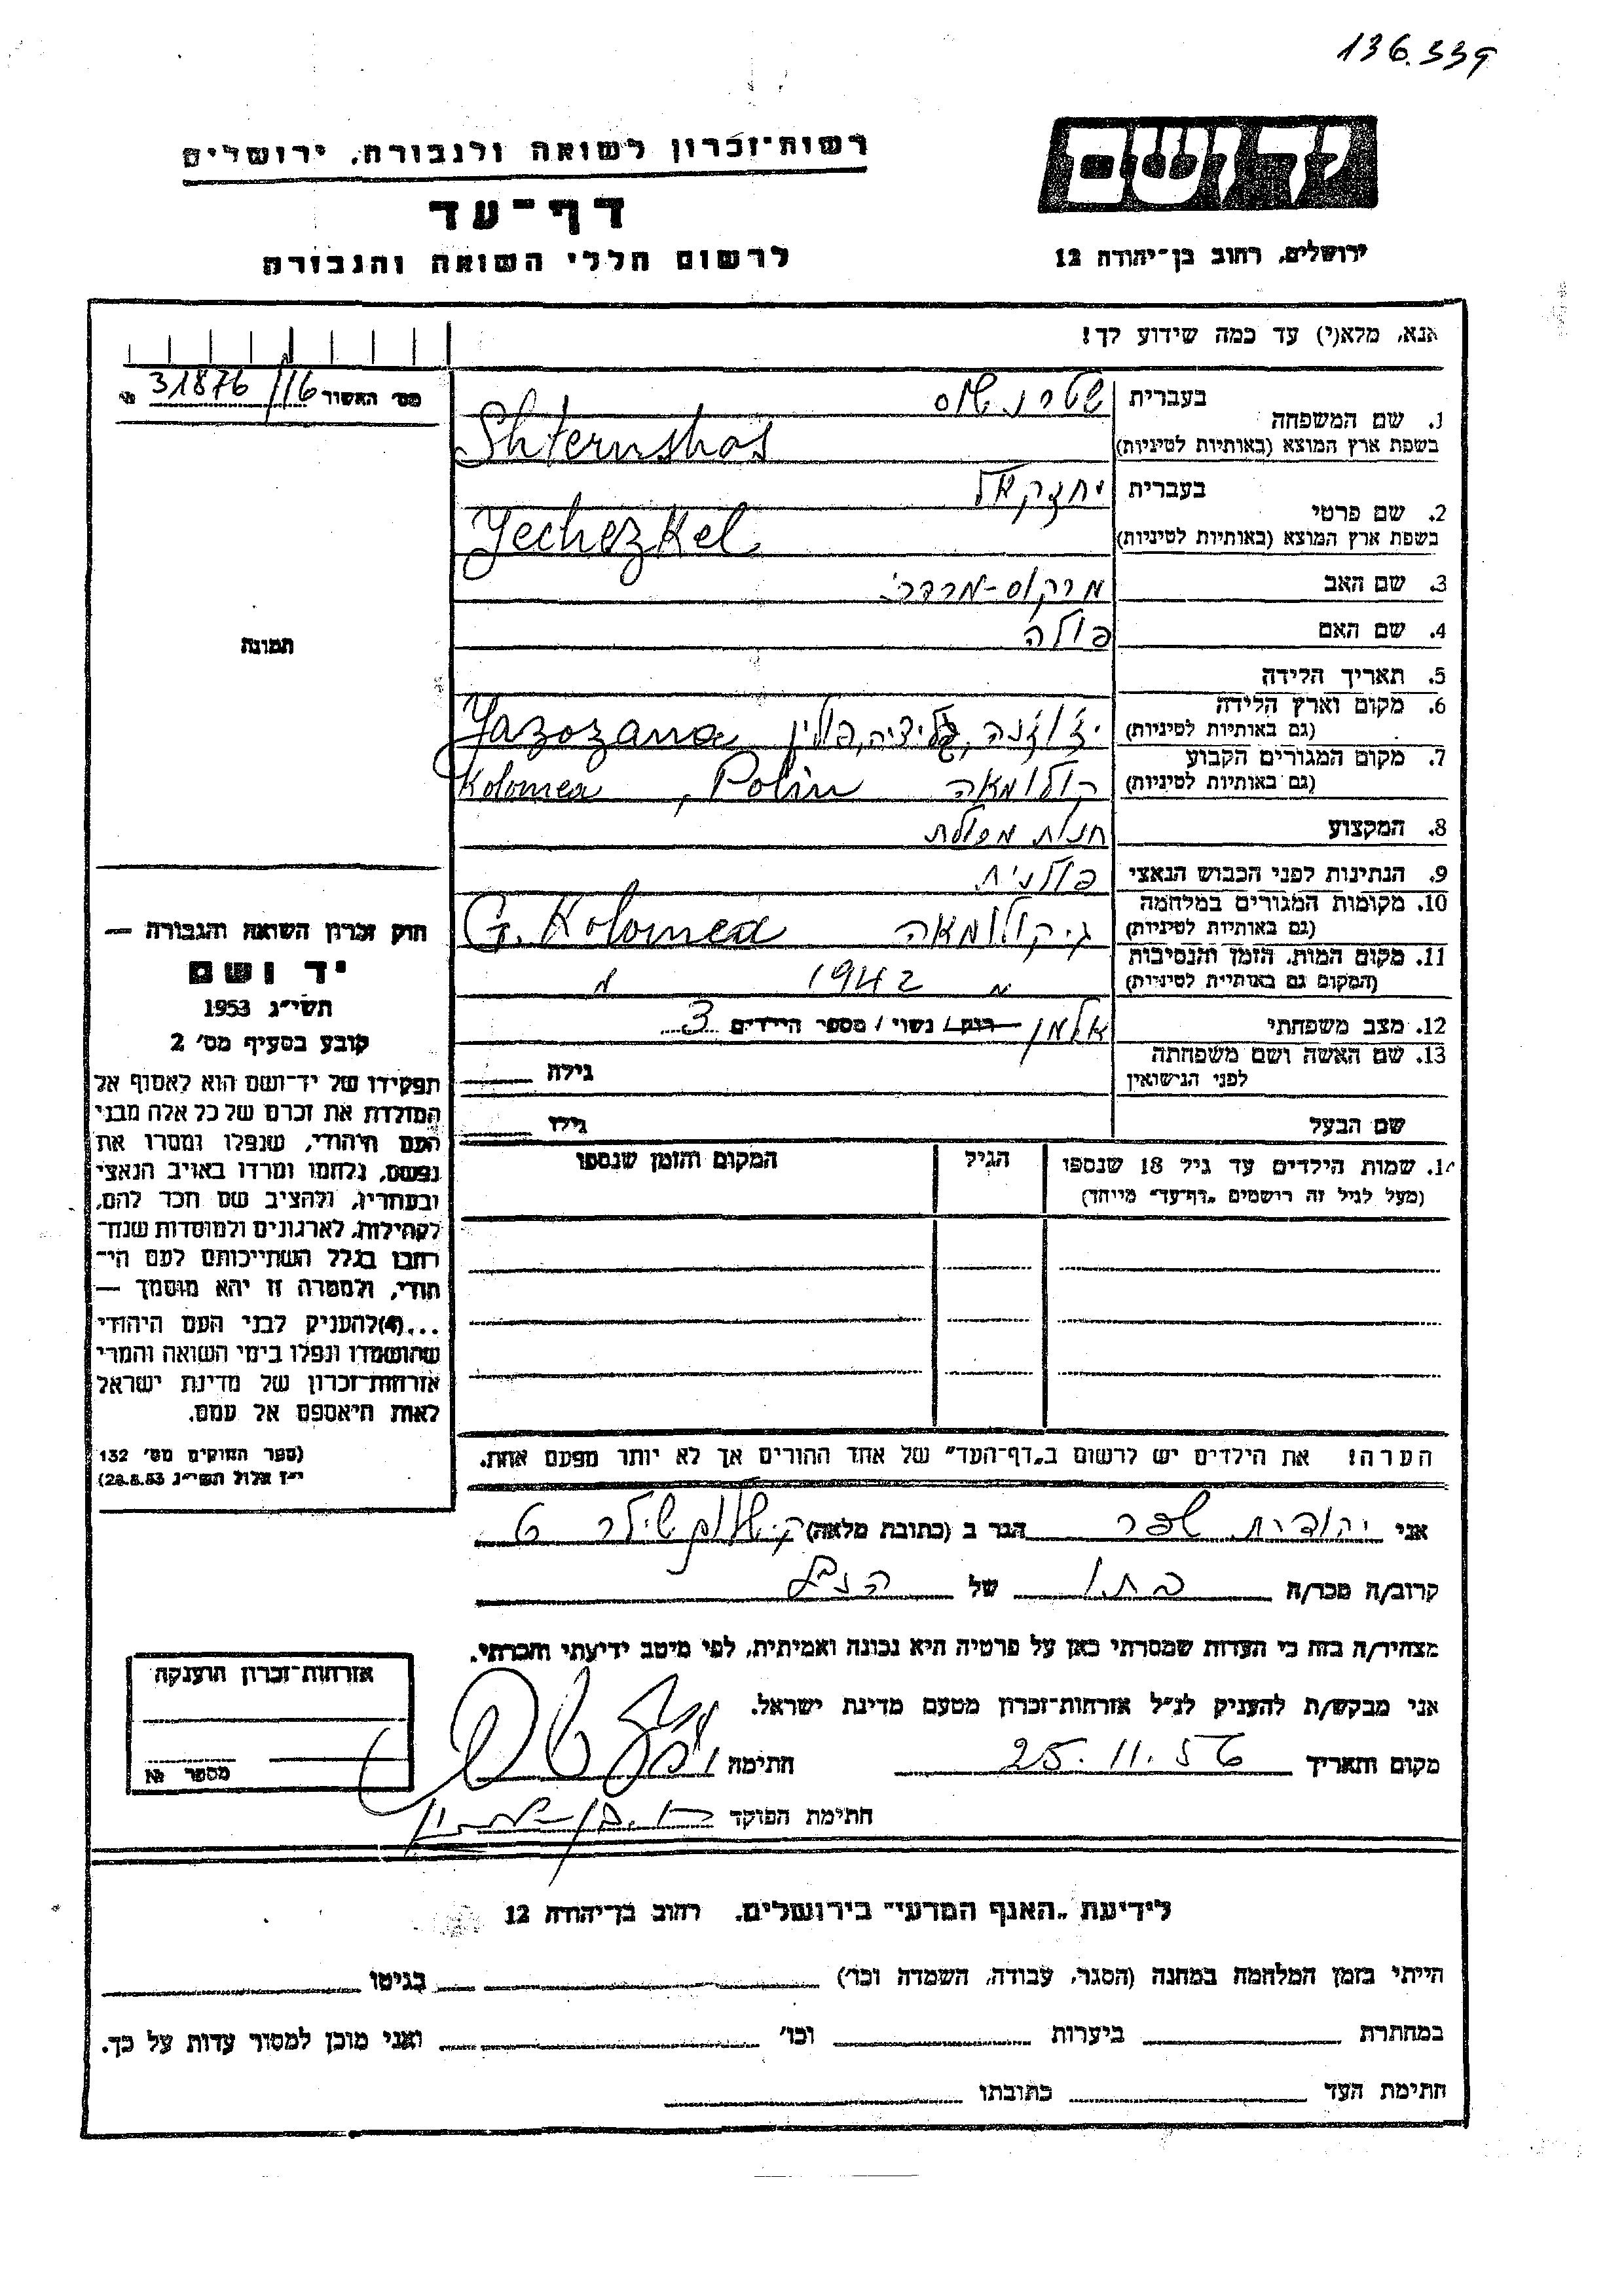 136.339
רשות-זכרון לשואה ולגבורה, ירושלים
יד ושם
דף-עד
לרשום חללי השואה והגבורה
ירושלים, רחוב בן-יהודה 12
אנא, מלא(י) עד כמה שידוע לך!
מס׳ האשור 31876/16 №
1. שם המשפחה בעברית
בשפת ארץ המוצא (באותיות לטיניות) Shternshos
2. שם פרטי בעברית יחזקאל
בשפת ארץ המוצא (באותיות לטיניות) Jechezkel
3. שם האב מרקוס-מרדכי
4. שם האם פולה
5. תאריך הלידה
6. מקום וארץ הלידה
(גם באותיות לטיניות) גליציה, פולין
7. מקום המגורים הקבוע
(גם באותיות לטיניות) קולומאה Polin, Kolomea
8. המקצוע חנות מכולת
9. הנתינות לפני הכבוש הנאצי פולנית
10. מקומות המגורים במלחמה
(גם באותיות לטיניות) ג. קולומאה G. Kolomea
11. מקום המות, הזמן והנסיבות
(המקום גם באותיות לטיניות) 1942
12. מצב משפחתי אלמן רוק/ נשוי / מספר הילדים 3
13. שם האשה ושם משפחתה
לפני הנישואין גילה
שם הבעל גילו
14. שמות הילדים עד גיל 18 שנספו הגיל המקום והזמן שנספו
(מעל לגיל זה רושמים „דף-עד״ מיוחד)
הערה! את הילדים יש לרשום ב„דף-העד״ של אחד ההורים אך לא יותר מפעם אחת.
תמונה
חוק זכרון השואה והגבורה —
יד ושם
תשי״ג 1953
קובע בסעיף מס׳ 2
תפקידו של יד-ושם הוא לאסוף אל
המולדת את זכרם של כל אלה מבני
העם היהודי, שנפלו ומסרו את
נפשם, נלחמו ומרדו באויב הנאצי
ובעוזריו, ולהציב שם וזכר להם,
לקהילות, לארגונים ולמוסדות שנח-
רבו בגלל השתייכותם לעם הי-
הודי, ולמטרה זו יהא מוסמך —
...(4)להעניק לבני העם היהודי
שהושמדו ונפלו בימי השואה והמרי
אזרחות-זכרון של מדינת ישראל
לאות היאספם אל עמם.
(ספר החוקים מס׳ 132
י״ז אלול תשי״ג 28.8.53)
אני יהודית שפר הגר ב (כתובת מלאה)
קרוב/ה מכר/ה בתו של הנ״ל
מצהיר/ה בזה כי העדות שמסרתי כאן על פרטיה היא נכונה ואמיתית, לפי מיטב ידיעתי והכרתי.
אני מבקש/ת להעניק לנ״ל אזרחות-זכרון מטעם מדינת ישראל.
מקום ותאריך 25.11.56 חתימה
חתימת הפוקד
אזרחות-זכרון הוענקה
מספר №
לידיעת „האגף המדעי״ בירושלים, רחוב בן-יהודה 12
הייתי בזמן המלחמה במחנה (הסגר, עבודה, השמדה וכו׳) בגיטו
במחתרת ביערות וכו׳ ואני מוכן למסור עדות על כך.
חתימת העד כתובתו